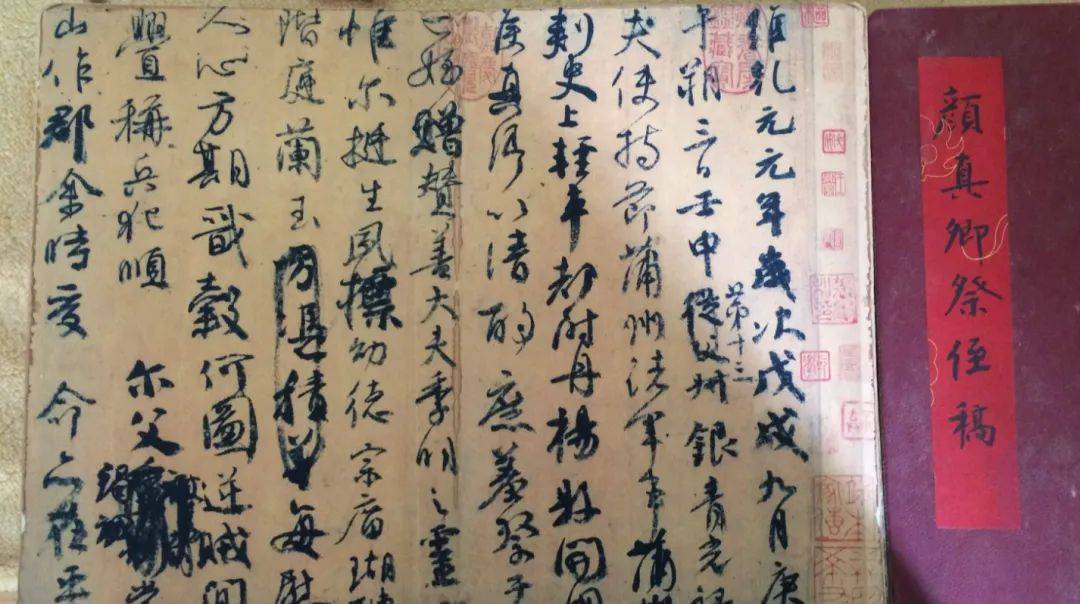 顏真卿祭侄稿
惟乾元元年歲次戊戌九月庚
午朔三日壬申第十三從父銀青光祿
夫使持節蒲州諸軍事蒲州
刺史上輕車都尉丹楊縣開國
侯真卿以清酌庶羞祭于
亡姪贈贊善大夫季明之靈
惟爾挺生夙標幼德宗廟瑚璉
階庭蘭玉方憑積善每慰
人心方期戩穀何圖逆賊間
釁稱兵犯順 爾父常
山作郡余時受 命亦在平